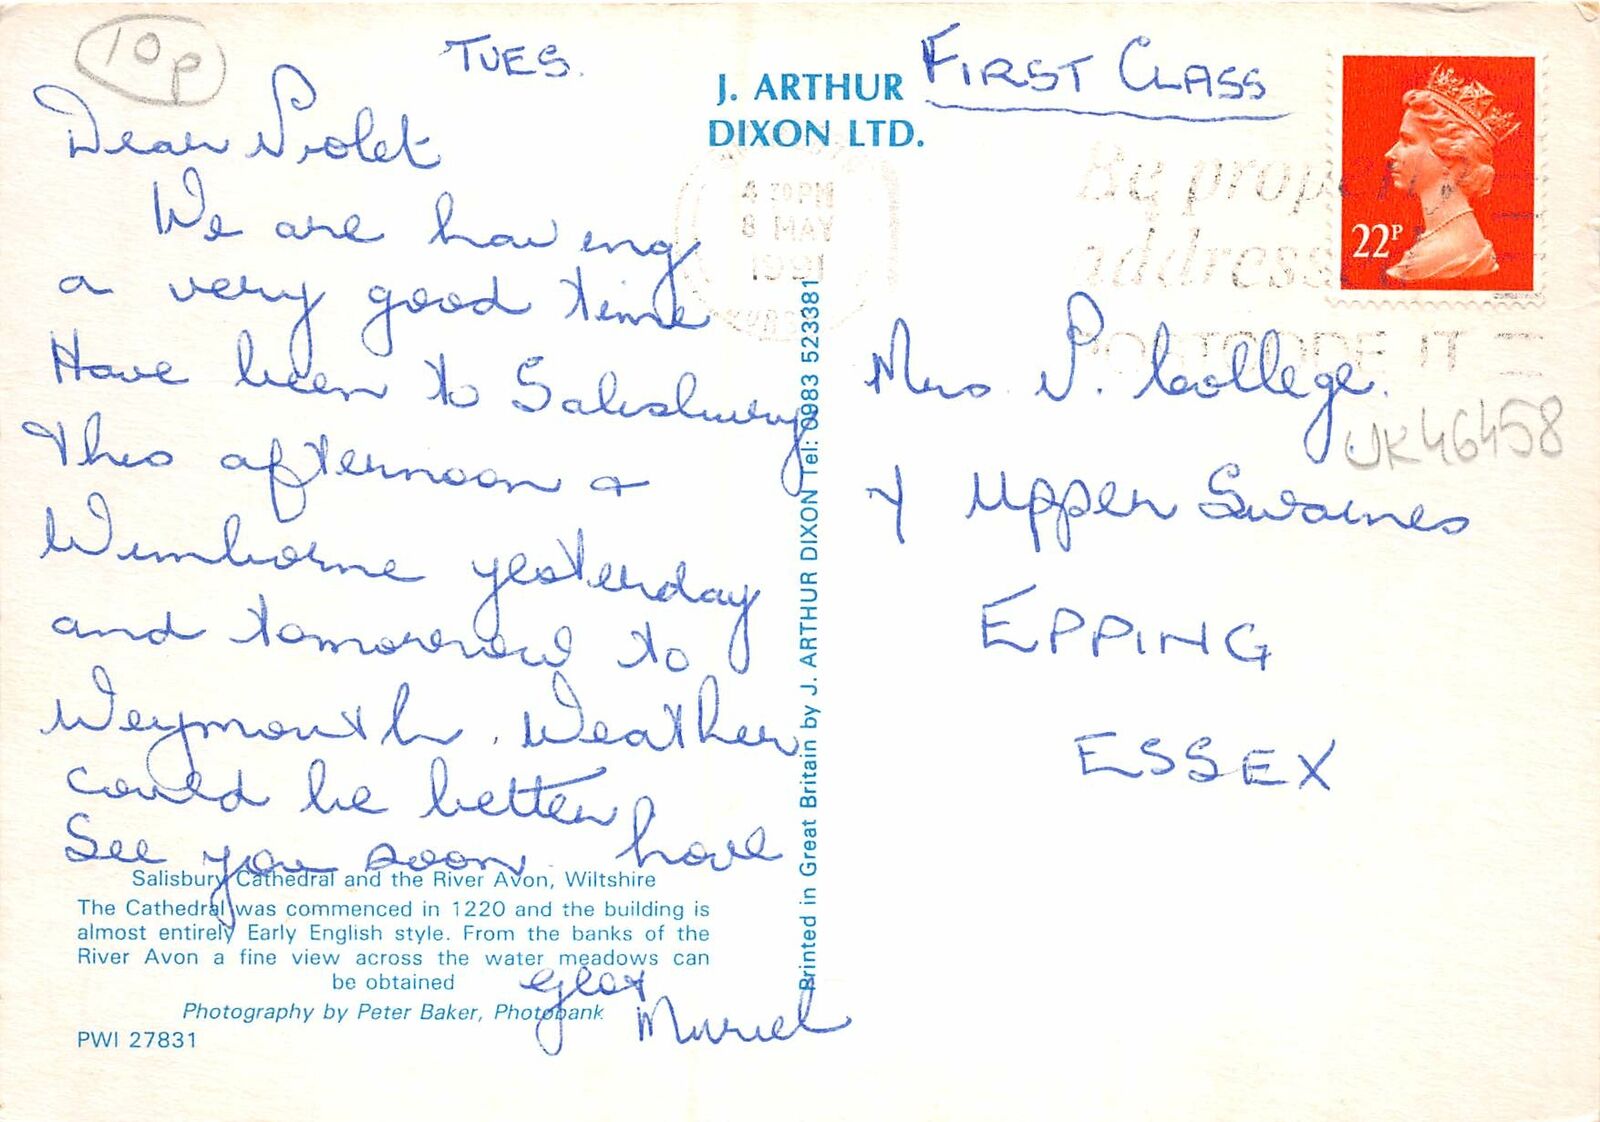 10p
TUES.
Dear Violet
We are having
a very good time
Have been to Salisbury
this afternoon +
Wimborne yesterday
and tomorrow to
Weymouth. Weather
could be better
See you soon. love
Muriel
Salisbury Cathedral and the River Avon, Wiltshire
The Cathedral was commenced in 1220 and the building is
almost entirely Early English style. From the banks of the
River Avon a fine view across the water meadows can
be obtained
Photography by Peter Baker, Photobank
PWI 27831
J. ARTHUR
DIXON LTD.
Printed in Great Britain by J. ARTHUR DIXON Tel: 0983 523381
FIRST CLASS
22P
8 MAY
1991
POSTCODE IT
Mrs V. College.
UK46458
Upper Swaines
EPPING
ESSEX